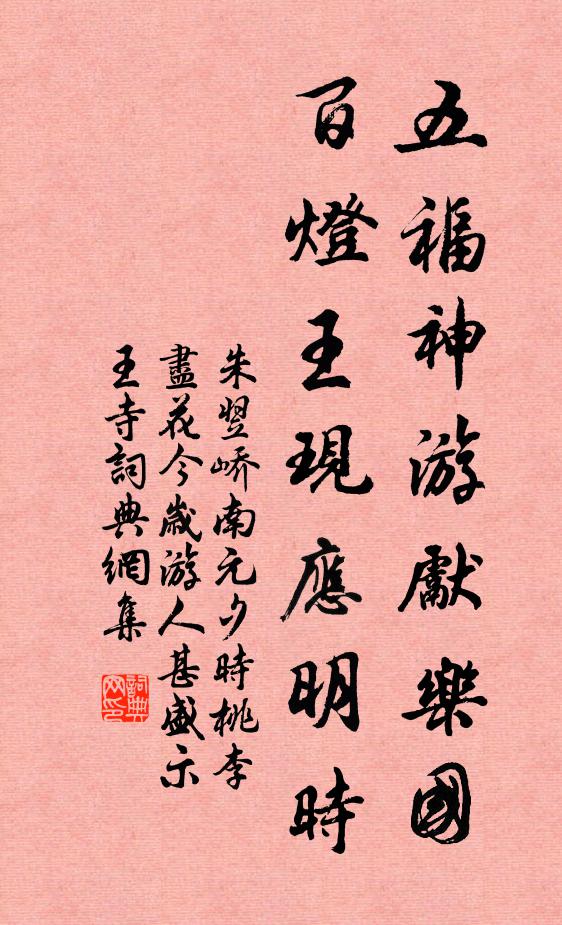 五福神游獻樂國
百燈王現應明時
朱翌嶠南元夕時桃李
盡花今歲游人甚盛示
王寺詞典網集
詞典
网印